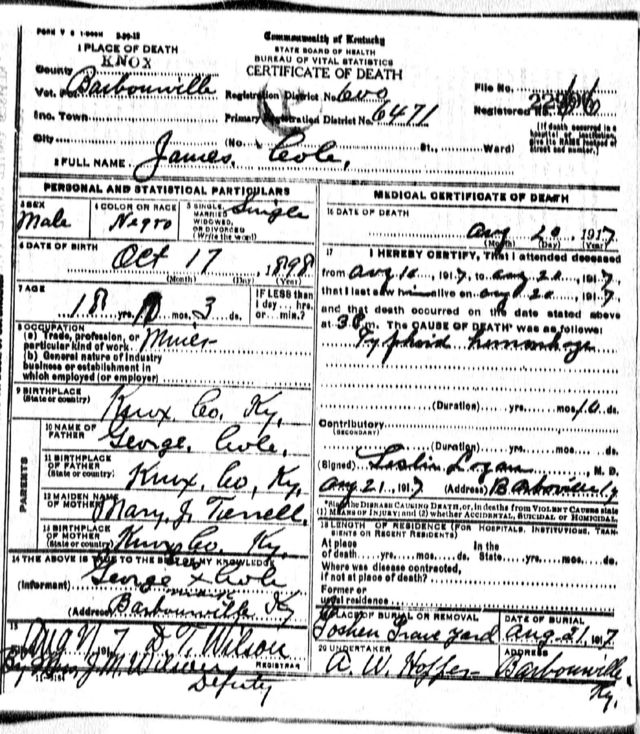 FORM V S
Commonwealth of Kentucky
STATE BOARD OF HEALTH
BUREAU OF VITAL STATISTICS
CERTIFICATE OF DEATH
1 PLACE OF DEATH
County KNOX
Vot. Pct. Barbourville
Inc. Town
City
Registration District No. 600
Primary Registration District No. 6471
(No. St., Ward)
File No.
Registered No.
[If death occurred in a hospital or institution, give its NAME instead of street and number.]
2 FULL NAME James Cole,
PERSONAL AND STATISTICAL PARTICULARS
3 SEX Male
4 COLOR OR RACE Negro
5 SINGLE, MARRIED, WIDOWED, OR DIVORCED (Write the word) Single
6 DATE OF BIRTH Oct 17, 1898
(Month) (Day) (Year)
7 AGE
18 yrs. 10 mos. 3 ds.
IF LESS than 1 day... hrs. or min.?
8 OCCUPATION
(a) Trade, profession, or particular kind of work. Miner
(b) General nature of industry business or establishment in which employed (or employer)
9 BIRTHPLACE (State or country) Knox Co, Ky,
PARENTS
10 NAME OF FATHER George Cole,
11 BIRTHPLACE OF FATHER (State or country) Knox, Co, Ky,
12 MAIDEN NAME OF MOTHER Mary J.
13 BIRTHPLACE OF MOTHER (State or country) Knox Co, Ky.
14 THE ABOVE IS TRUE TO THE BEST OF MY KNOWLEDGE
(Informant) George x Cole
(Address) Barbourville Ky
15 Aug 191 7 D. T. Wilson
REGISTRAR
By Mrs J. M. Wilson
Deputy
MEDICAL CERTIFICATE OF DEATH
16 DATE OF DEATH
Aug 20, 1917
(Month) (Day) (Year)
17 I HEREBY CERTIFY, That I attended deceased
from Aug 10, 1917, to Aug 20, 1917,
that I last saw him alive on Aug 20, 1917,
and that death occurred on the date stated above
at 3 P m. The CAUSE OF DEATH* was as follows:
Typhoid hemorrhage
(Duration) yrs. mos. 10 ds.
Contributory
(SECONDARY)
(Duration) yrs. mos. ds.
(Signed) Leslie Logan, M. D.
Aug 21, 1917 (Address) Barbourville Ky
*State the DISEASE CAUSING DEATH, or, in deaths from VIOLENT CAUSES state (1) MEANS OF INJURY; and (2) whether ACCIDENTAL, SUICIDAL OR HOMICIDAL.
18 LENGTH OF RESIDENCE (FOR HOSPITALS, INSTITUTIONS, TRANSIENTS OR RECENT RESIDENTS)
At place of death yrs. mos. ds. In the State yrs. mos. ds.
Where was disease contracted, if not at place of death?
Former or usual residence
19 PLACE OF BURIAL OR REMOVAL Goshen Grave Yard
DATE OF BURIAL Aug. 21, 1917
20 UNDERTAKER A. W. Hopper
ADDRESS Barbourville, Ky.